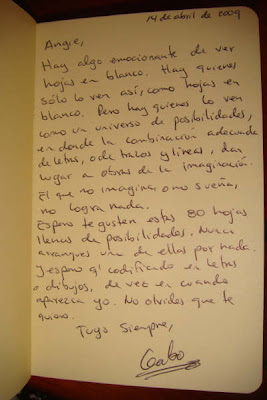 14 de abril de 2009
Angie,
Hay algo emocionante de ver
hojas en blanco. Hay quienes
sólo lo ven así, como hojas en
blanco. Pero hay quienes lo ven
como un universo de posibilidades,
en donde la combinación adecuada
de letras, o de trazos y líneas, dan
lugar a obras de la imaginación.
El que no imagina, o no sueña,
no logra nada.
Espero te gusten estas 80 hojas
llenas de posibilidades. Nunca
arranques una de ellas por nada.
Y espero q' codificado en letras
o dibujos, de vez en cuando
aparezca yo. No olvides que te
quiero.
Tuyo Siempre,
Gabo